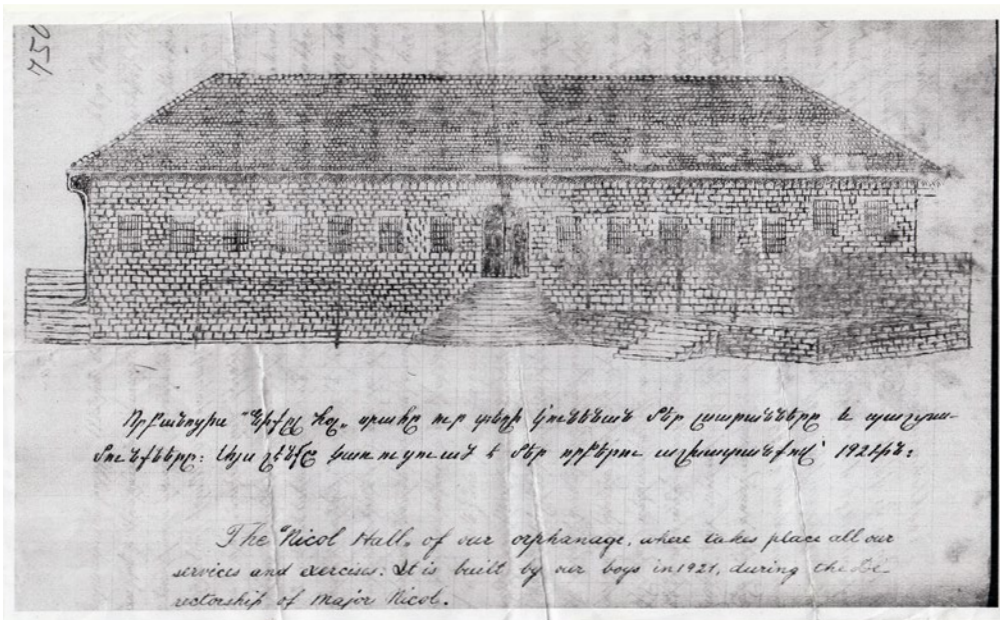 750
Որբանոցիս "Նիքըլ Հօլ„ սրահը ուր տեղի կ՚ունենան մեր և պաշտա-
մունքները։ Այս շէնքը կառուցուած է մեր որբերու աշխատանքով՝ 1921ին։
The "Nicol Hall„ of our orphanage, where takes place all our
services and exercises. It is built by our boys in 1921, during the Di
rectorship of Major Nicol.